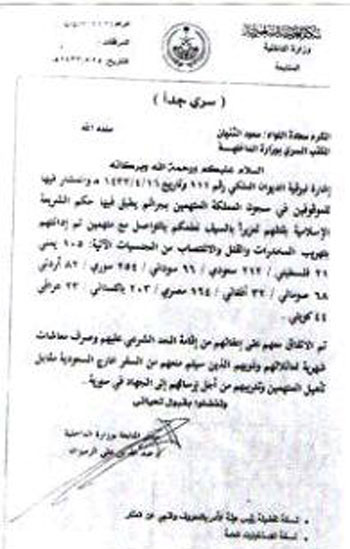 وزارة الداخلية
( سري جداً )
المكرم سعادة اللواء / سعود الثنيان
المكتب السري بوزارة الداخلية
السلام عليكم ورحمة الله وبركاته
إشارة لبرقية الديوان الملكي رقم ١١٢ وتاريخ ١٤٣٣/٤/١٦ هـ والمشار فيها
للموقوفين في سجون المملكة المتهمين بجرائم يطبق فيها حكم الشريعة
الإسلامية بقتلهم تعزيراً بالسيف نفيدكم بالتواصل مع متهمين تم إدانتهم
بتهريب المخدرات والقتل والاغتصاب من الجنسيات الآتية: ١٠٥ يمني
٢١ فلسطيني / ٢١٢ سعودي / ٩٦ سوداني / ٢٥٤ سوري / ٨٢ أردني
٦٨ صومالي / ٣٢ أفغاني / ١٩٤ مصري / ٢٠٣ باكستاني / ٢٣ عراقي
٤٤ كويتي.
تم الاتفاق معهم على إعفائهم من إقامة الحد الشرعي عليهم وصرف معاشات
شهرية لعائلاتهم وذويهم الذين سيتم منعهم من السفر خارج السعودية مقابل
تأهيل المتهمين وتدريبهم من أجل إرسالهم إلى الجهاد في سورية.
وتفضلوا بقبول تحياتي
المتابعة بوزارة الداخلية
عبد الله بن علي الرميزان